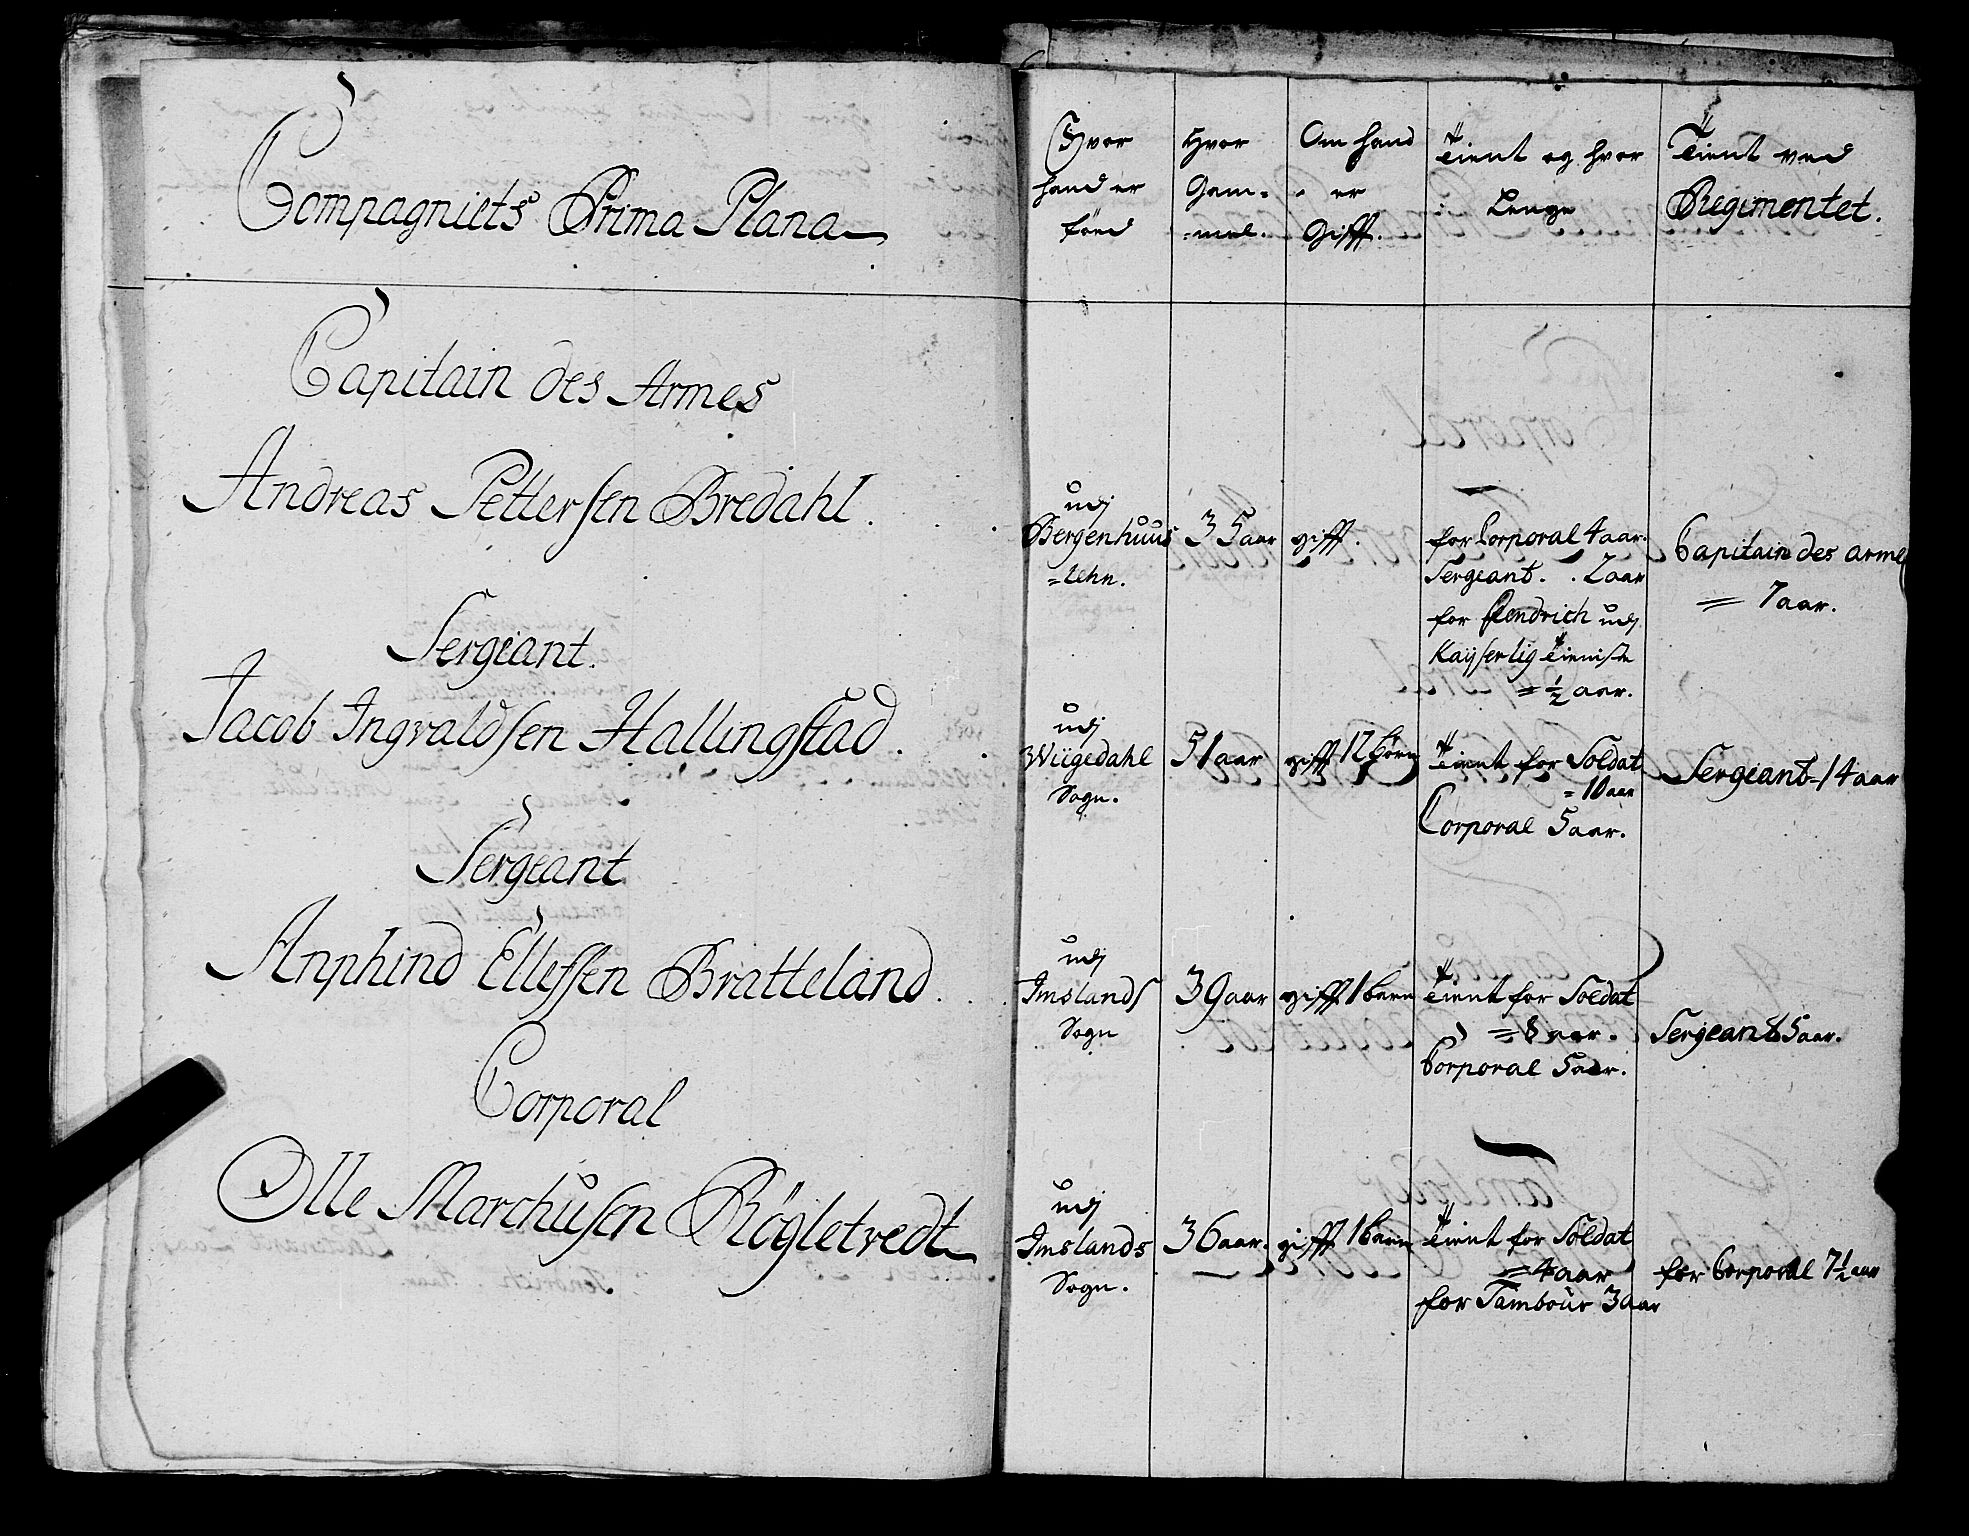 Compagniets Prima Plana
Capitain des Armes
Andreas Pettersen Bredahl.
Sergeant.
Jacob Ingvaldsen Hallingstad.
Sergeant
Anphind Ellefsen Bratteland.
Corporal
Olle Marchusen Rögletvedt
Hvor
hand er
föed
Hvor
Gam=
=mel.
Om hand
er
Gifft.
Tient og hvor
Lenge
Tient ved
Regimentet.
udj
Bergenhuus
=Lehn.
35 aar
gifft.
for Corporal 4 aar.
Sergeant. . 2 aar
for Fendrich udj
Kayserlig Tieniste
= ½ aar.
Capitain des armes
= 7 aar.
udj
Wiigedahl
Sogn.
51 aar
gifft 12 börn
Tient for Soldat
= 10 aar
Corporal 5 aar.
Sergeant - 14 aar
udj
Imslands
Sogn
39 aar
gifft 1 barn
Tient for Soldat
= 8 aar.
Corporal 5 aar.
Sergeant 5 aar.
udj
Imslands
Sogn.
36 aar.
gifft 1 barn
Tient for Soldat
= 4 aar
for Tambour 3 aar
for Corporal 7½ aar